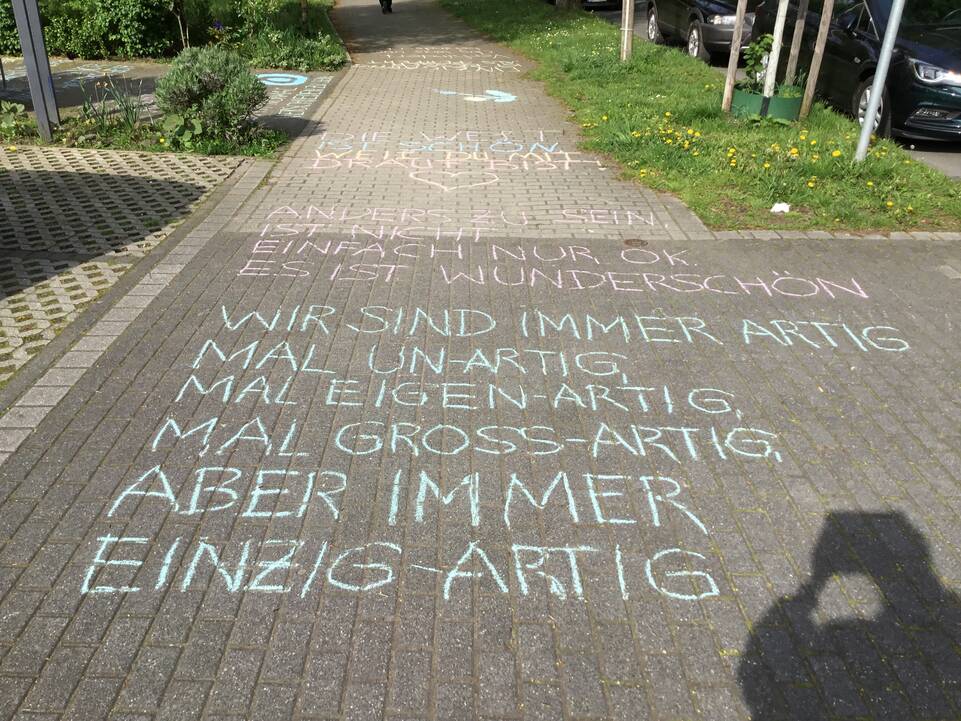 DIE WELT
IST SCHÖN
WEIL DU MIT
DRAUF BIST
ANDERS ZU SEIN
IST NICHT
EINFACH NUR OK.
ES IST WUNDERSCHÖN
WIR SIND IMMER ARTIG
MAL UN-ARTIG,
MAL EIGEN-ARTIG,
MAL GROSS-ARTIG,
ABER IMMER
EINZIG-ARTIG